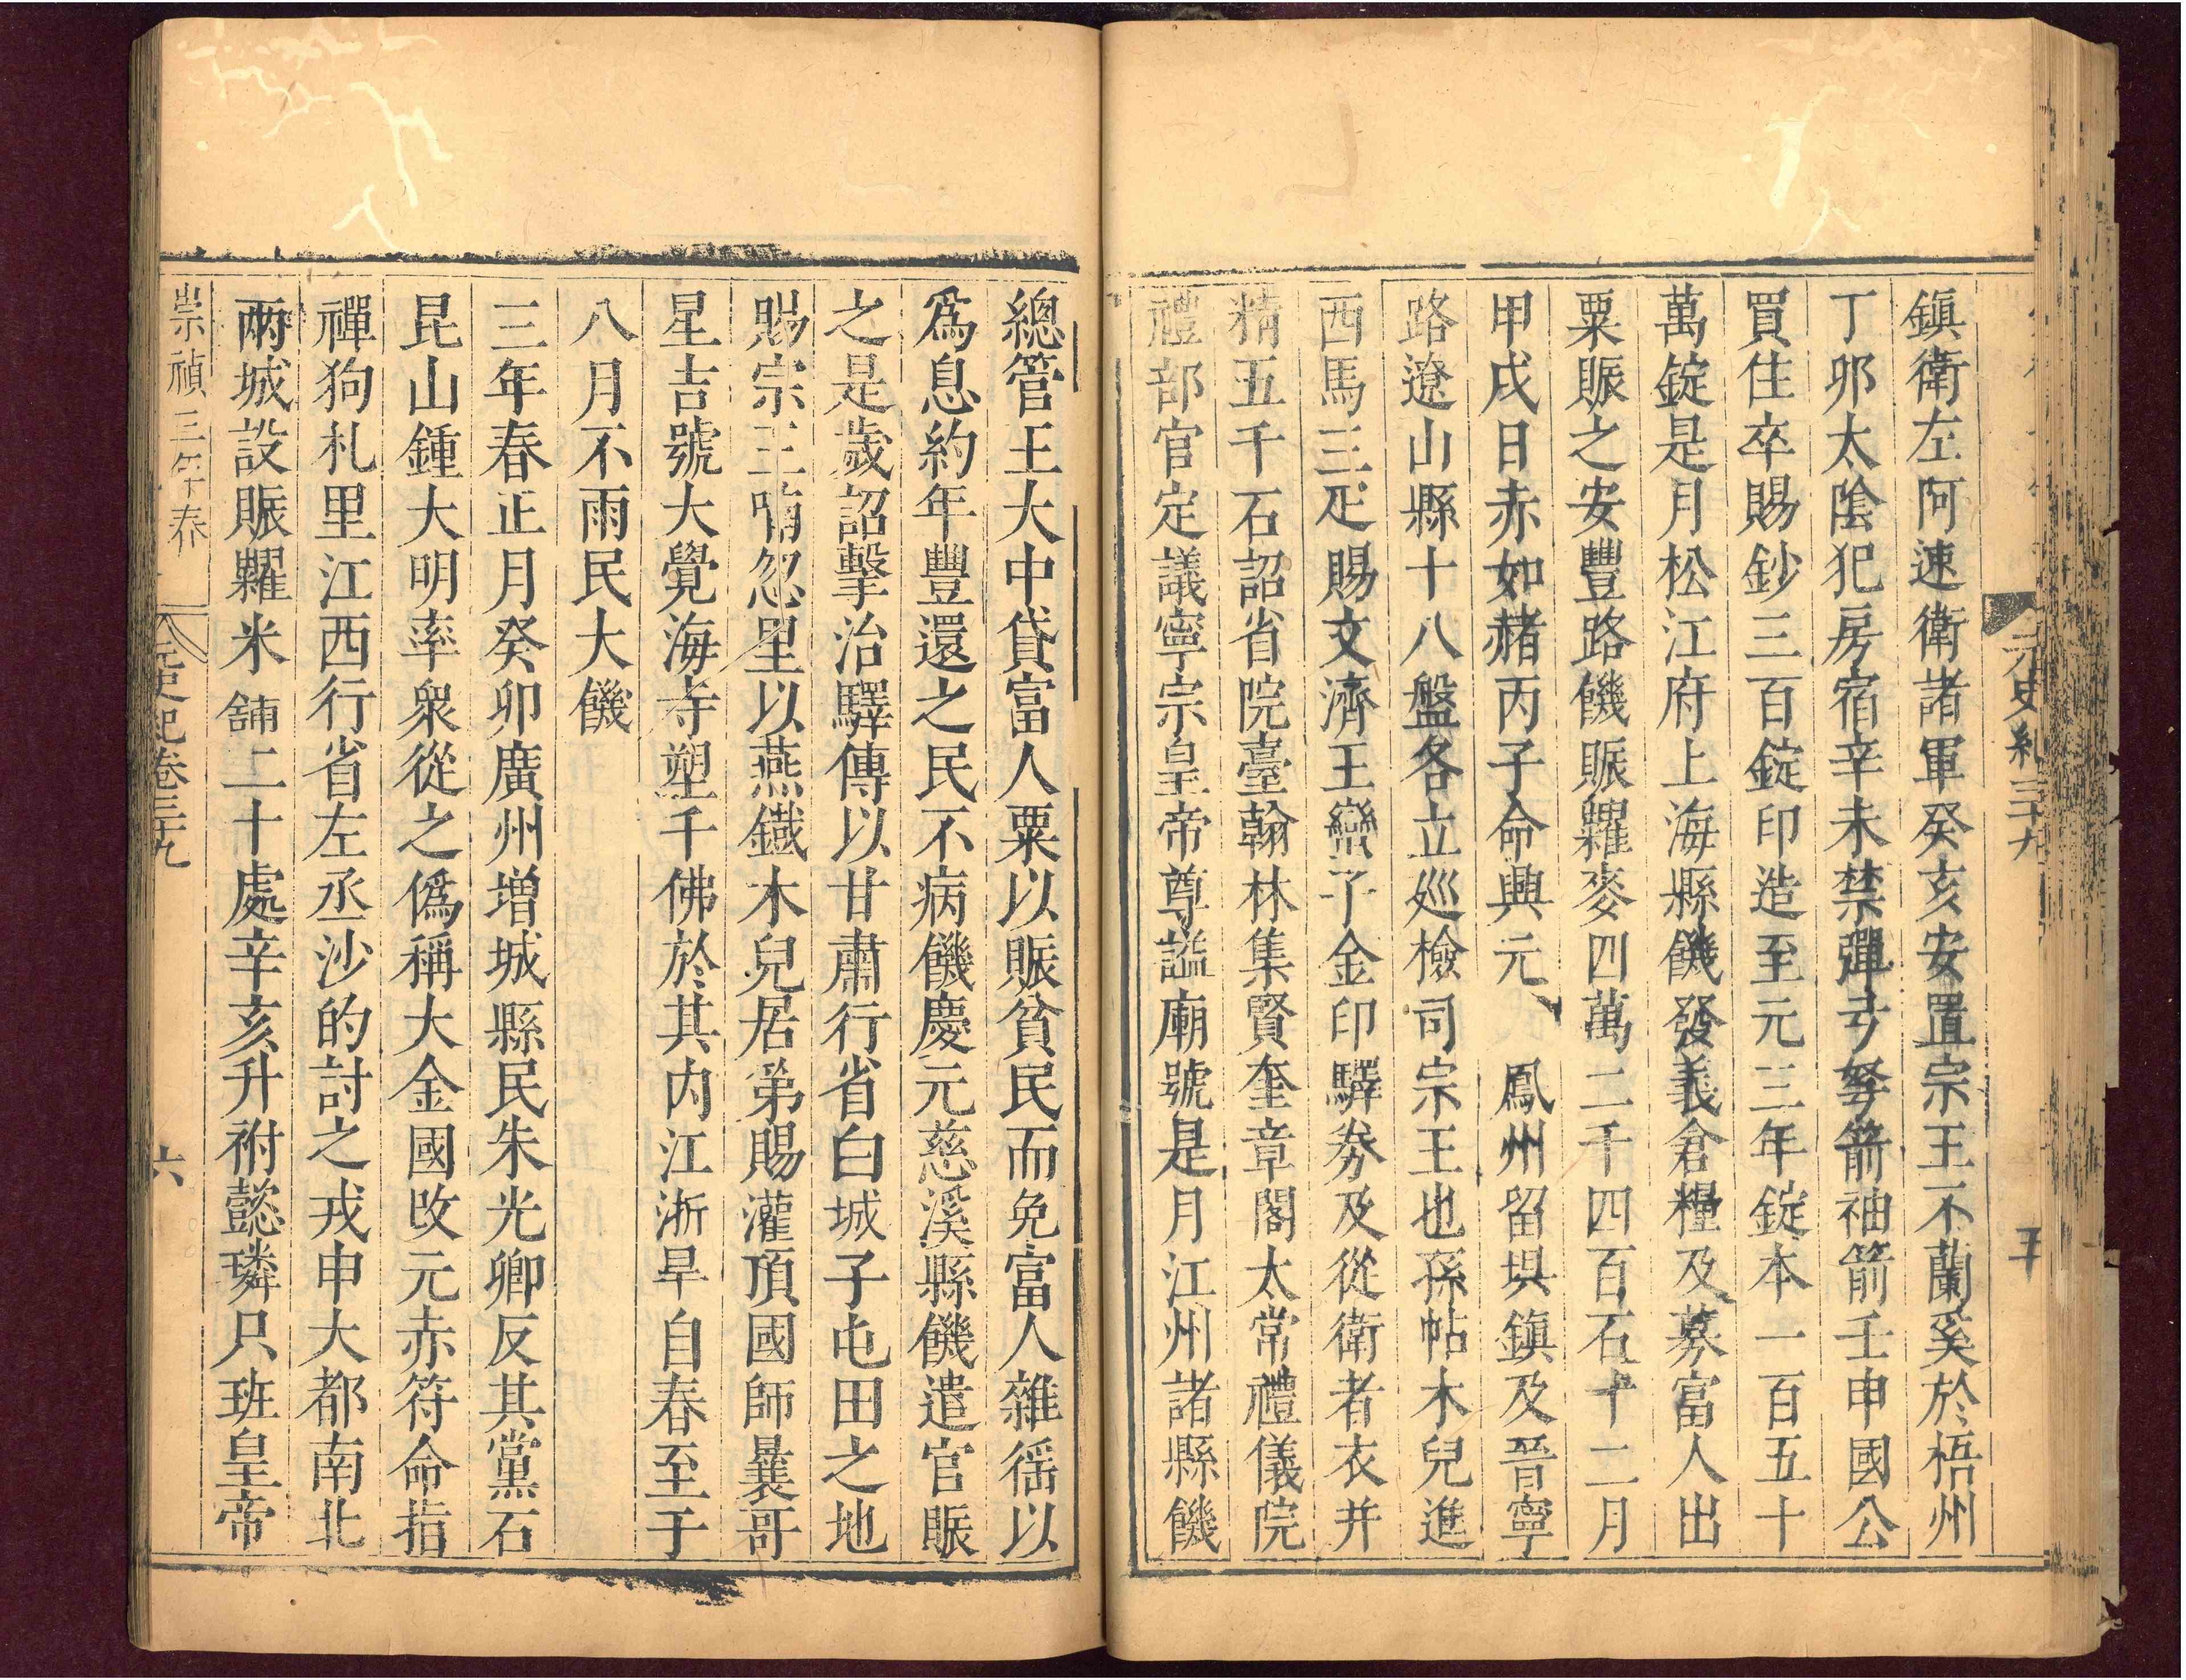 元史紀三十九
五
鎮衛左阿速衛諸軍癸亥安置宗王不蘭奚於梧州
丁卯太陰犯房宿辛未禁彈弓弩箭袖箭壬申國公
買住卒賜鈔三百錠印造至元三年錠本一百五十
萬錠是月松江府上海縣饑發義倉糧及募富人出
粟賑之安豐路饑賑糶麥四萬二千四百石十二月
甲戌日赤如赭丙子命興元 鳳州留垻鎮及晉寧
路遼山縣十八盤各立廵檢司宗王也孫帖木兒進
西馬三疋賜文濟王蠻子金印驛券及從衛者衣并
精五千石詔省院臺翰林集賢奎章閣太常禮儀院
禮部官定議寧宗皇帝尊謚廟號是月江州諸縣饑
總管王大中貸富人粟以賑貧民而免富人雜徭以
為息約年豐還之民不病饑慶元慈溪縣饑遣官賑
之是歲詔擊治驛傳以甘肅行省白城子屯田之地
賜宗王喃忽里以燕鐵木兒居第賜灌頂國師曩哥
星吉號大覺海寺塑千佛於其内江浙旱自春至于
八月不雨民大饑
三年春正月癸卯廣州增城縣民朱光卿反其黨石
昆山鍾大明率衆從之偽稱大金國改元赤符命指
禪狗札里江西行省左丞沙的討之戎申大都南北
兩城設賑糶米舖二十處辛亥升祔懿璘只班皇帝
崇禎三年春
元史紀卷三十九
六